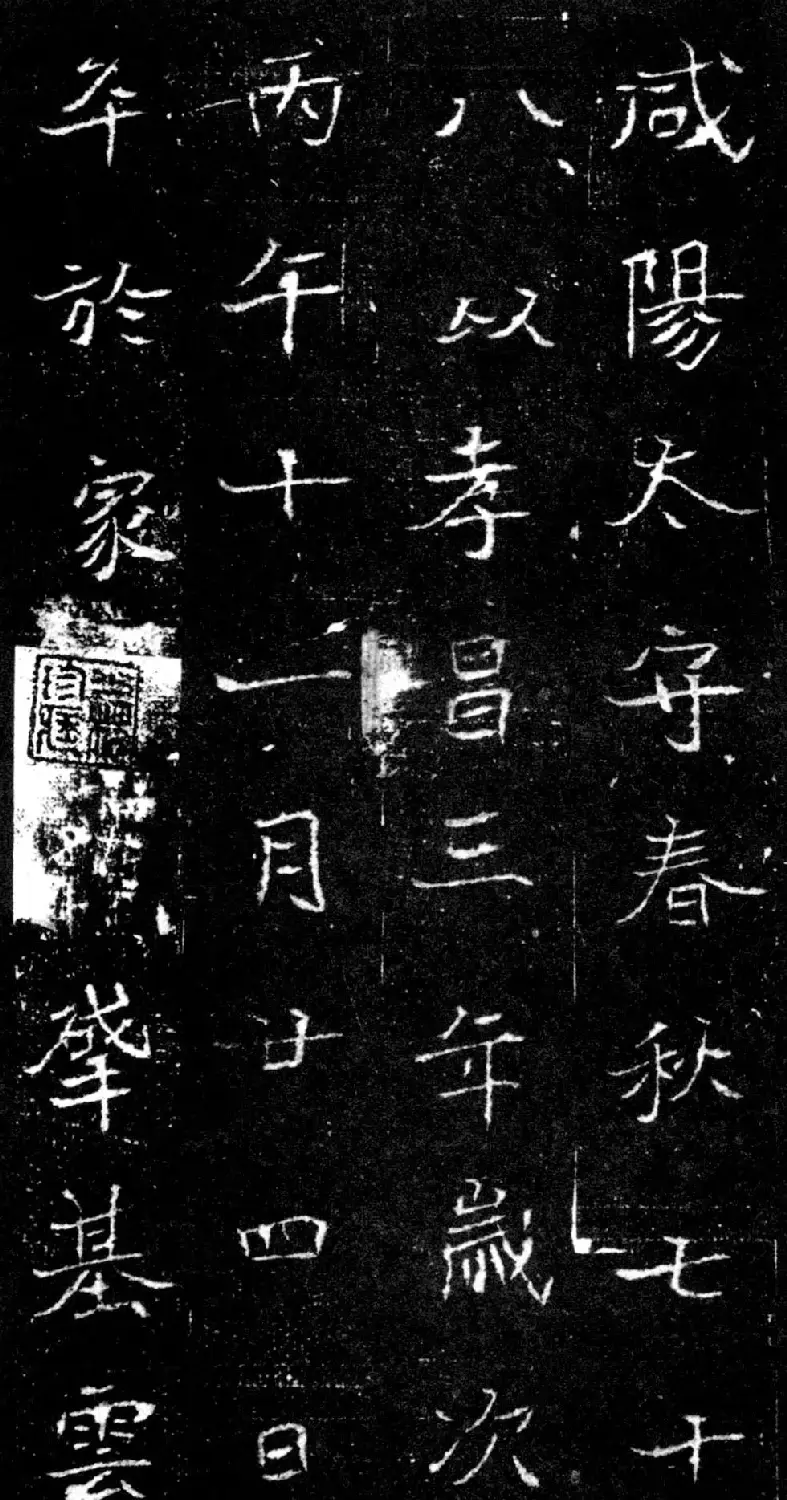 咸陽太守春秋七十
八以孝昌三年歲次
丙午十一月廿四日
卒於家肇基雲